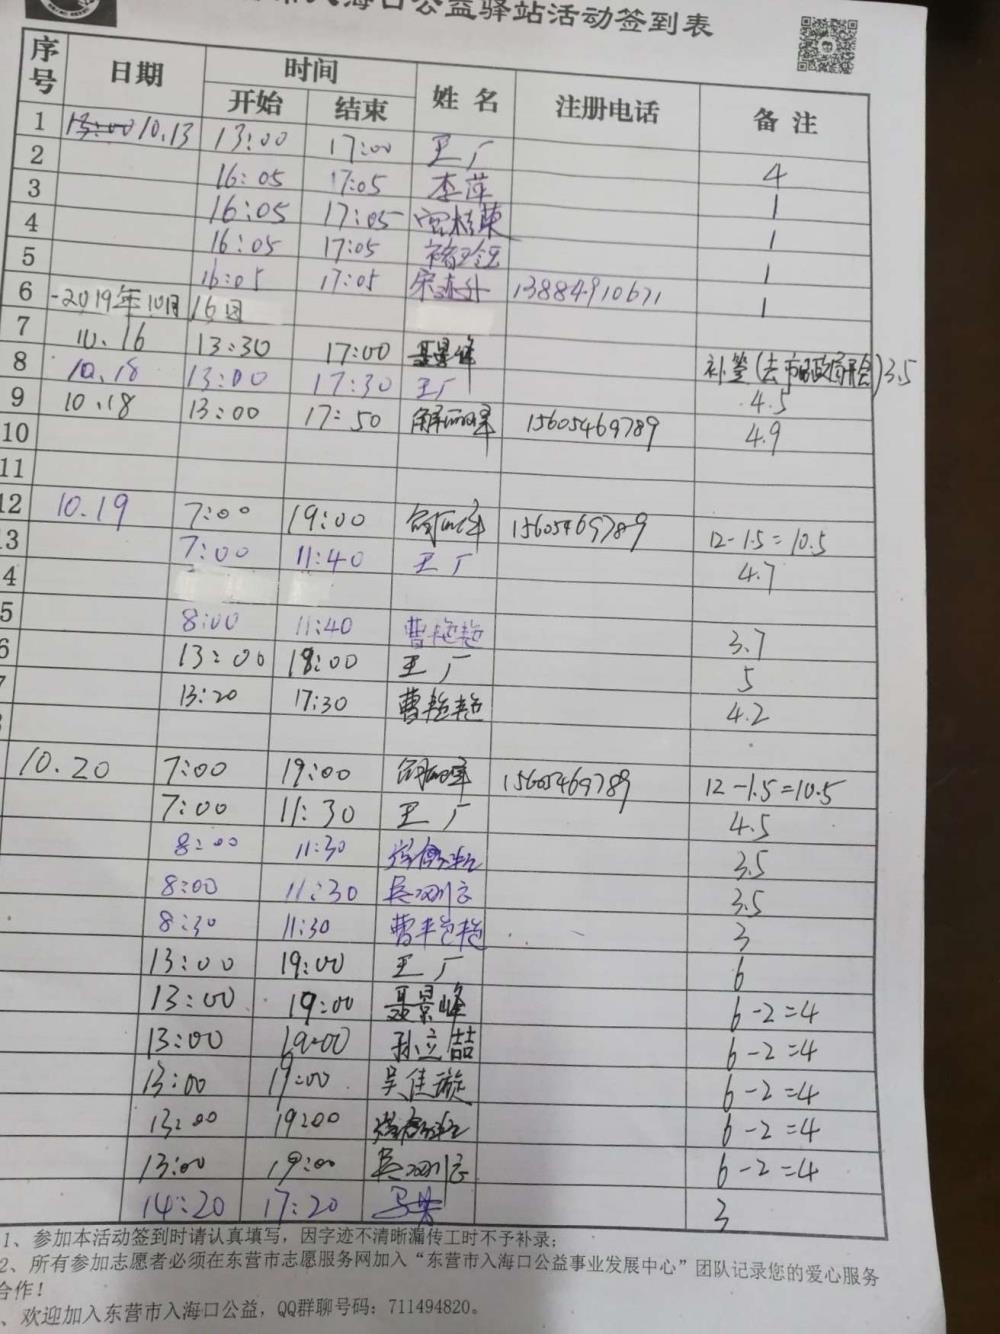 入海口公益驿站活动签到表
序号 日期 时间 姓 名 注册电话 备 注
开始 结束
1 13:00 10.13 13:00 17:00 王广 4
2 16:05 17:05 李萍 1
3 16:05 17:05 1
4 16:05 17:05 1
5 16:05 17:05 13884910671 1
6 2019年10月16日
7 10.16 13:30 17:00 聂景峰 补签(去市民政局开会)3.5
8 10.18 13:00 17:30 王广 4.5
9 10.18 13:00 17:50 15605469789 4.9
10
11
12 10.19 7:00 19:00 15605469789 12-1.5=10.5
3 7:00 11:40 王广 4.7
4
5 8:00 11:40 曹艳艳 3.7
6 13:00 18:00 王广 5
13:20 17:30 曹艳艳 4.2
10.20 7:00 19:00 15605469789 12-1.5=10.5
7:00 11:30 王广 4.5
8:00 11:30 3.5
8:00 11:30 3.5
8:30 11:30 曹艳艳 3
13:00 19:00 王广 6
13:00 19:00 聂景峰 6-2=4
13:00 19:00 孙立喆 6-2=4
13:00 19:00 吴佳璇 6-2=4
13:00 19:00 6-2=4
13:00 19:00 6-2=4
14:20 17:20 3
1、参加本活动签到时请认真填写，因字迹不清晰漏传工时不予补录；
2、所有参加志愿者必须在东营市志愿服务网加入“东营市入海口公益事业发展中心”团队记录您的爱心服务
合作！
、欢迎加入东营市入海口公益，QQ群聊号码：711494820。